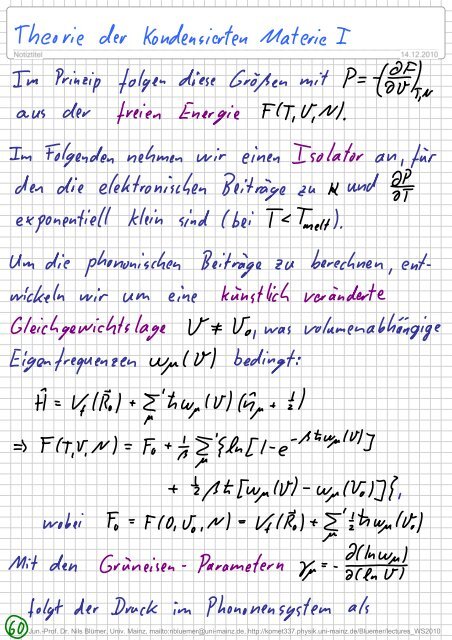 Theorie der Kondensierten Materie I
Notiztitel 14.12.2010
Im Prinzip folgen diese Größen mit P = -(∂F/∂V)_{T,N}
aus der freien Energie F(T,V,N).
Im Folgenden nehmen wir einen Isolator an, für
den die elektronischen Beiträge zu κ und ∂P/∂T
exponentiell klein sind (bei T < T_melt).
Um die phononischen Beiträge zu berechnen, ent-
wickeln wir um eine künstlich veränderte
Gleichgewichtslage V ≠ V₀, was volumenabhängige
Eigenfrequenzen ω_μ(V) bedingt:
Ĥ = V_f(R⃗₀) + Σ'_μ ħω_μ(V)(n̂_μ + ½)
⇒ F(T,V,N) = F₀ + 1/β Σ'_μ {ln[1-e^{-βħω_μ(V)}]
+ ½βħ[ω_μ(V) - ω_μ(V₀)]},
wobei F₀ = F(0,V₀,N) = V_f(R⃗₀) + Σ'_μ ½ħω_μ(V₀)
Mit den Grüneisen-Parametern γ_μ = - ∂(ln ω_μ)/∂(ln V)
folgt der Druck im Phononensystem als
60 Jun.-Prof. Dr. Nils Blümer, Univ. Mainz, mailto:nbluemer@uni-mainz.de, http://komet337.physik.uni-mainz.de/Bluemer/lectures_WS2010